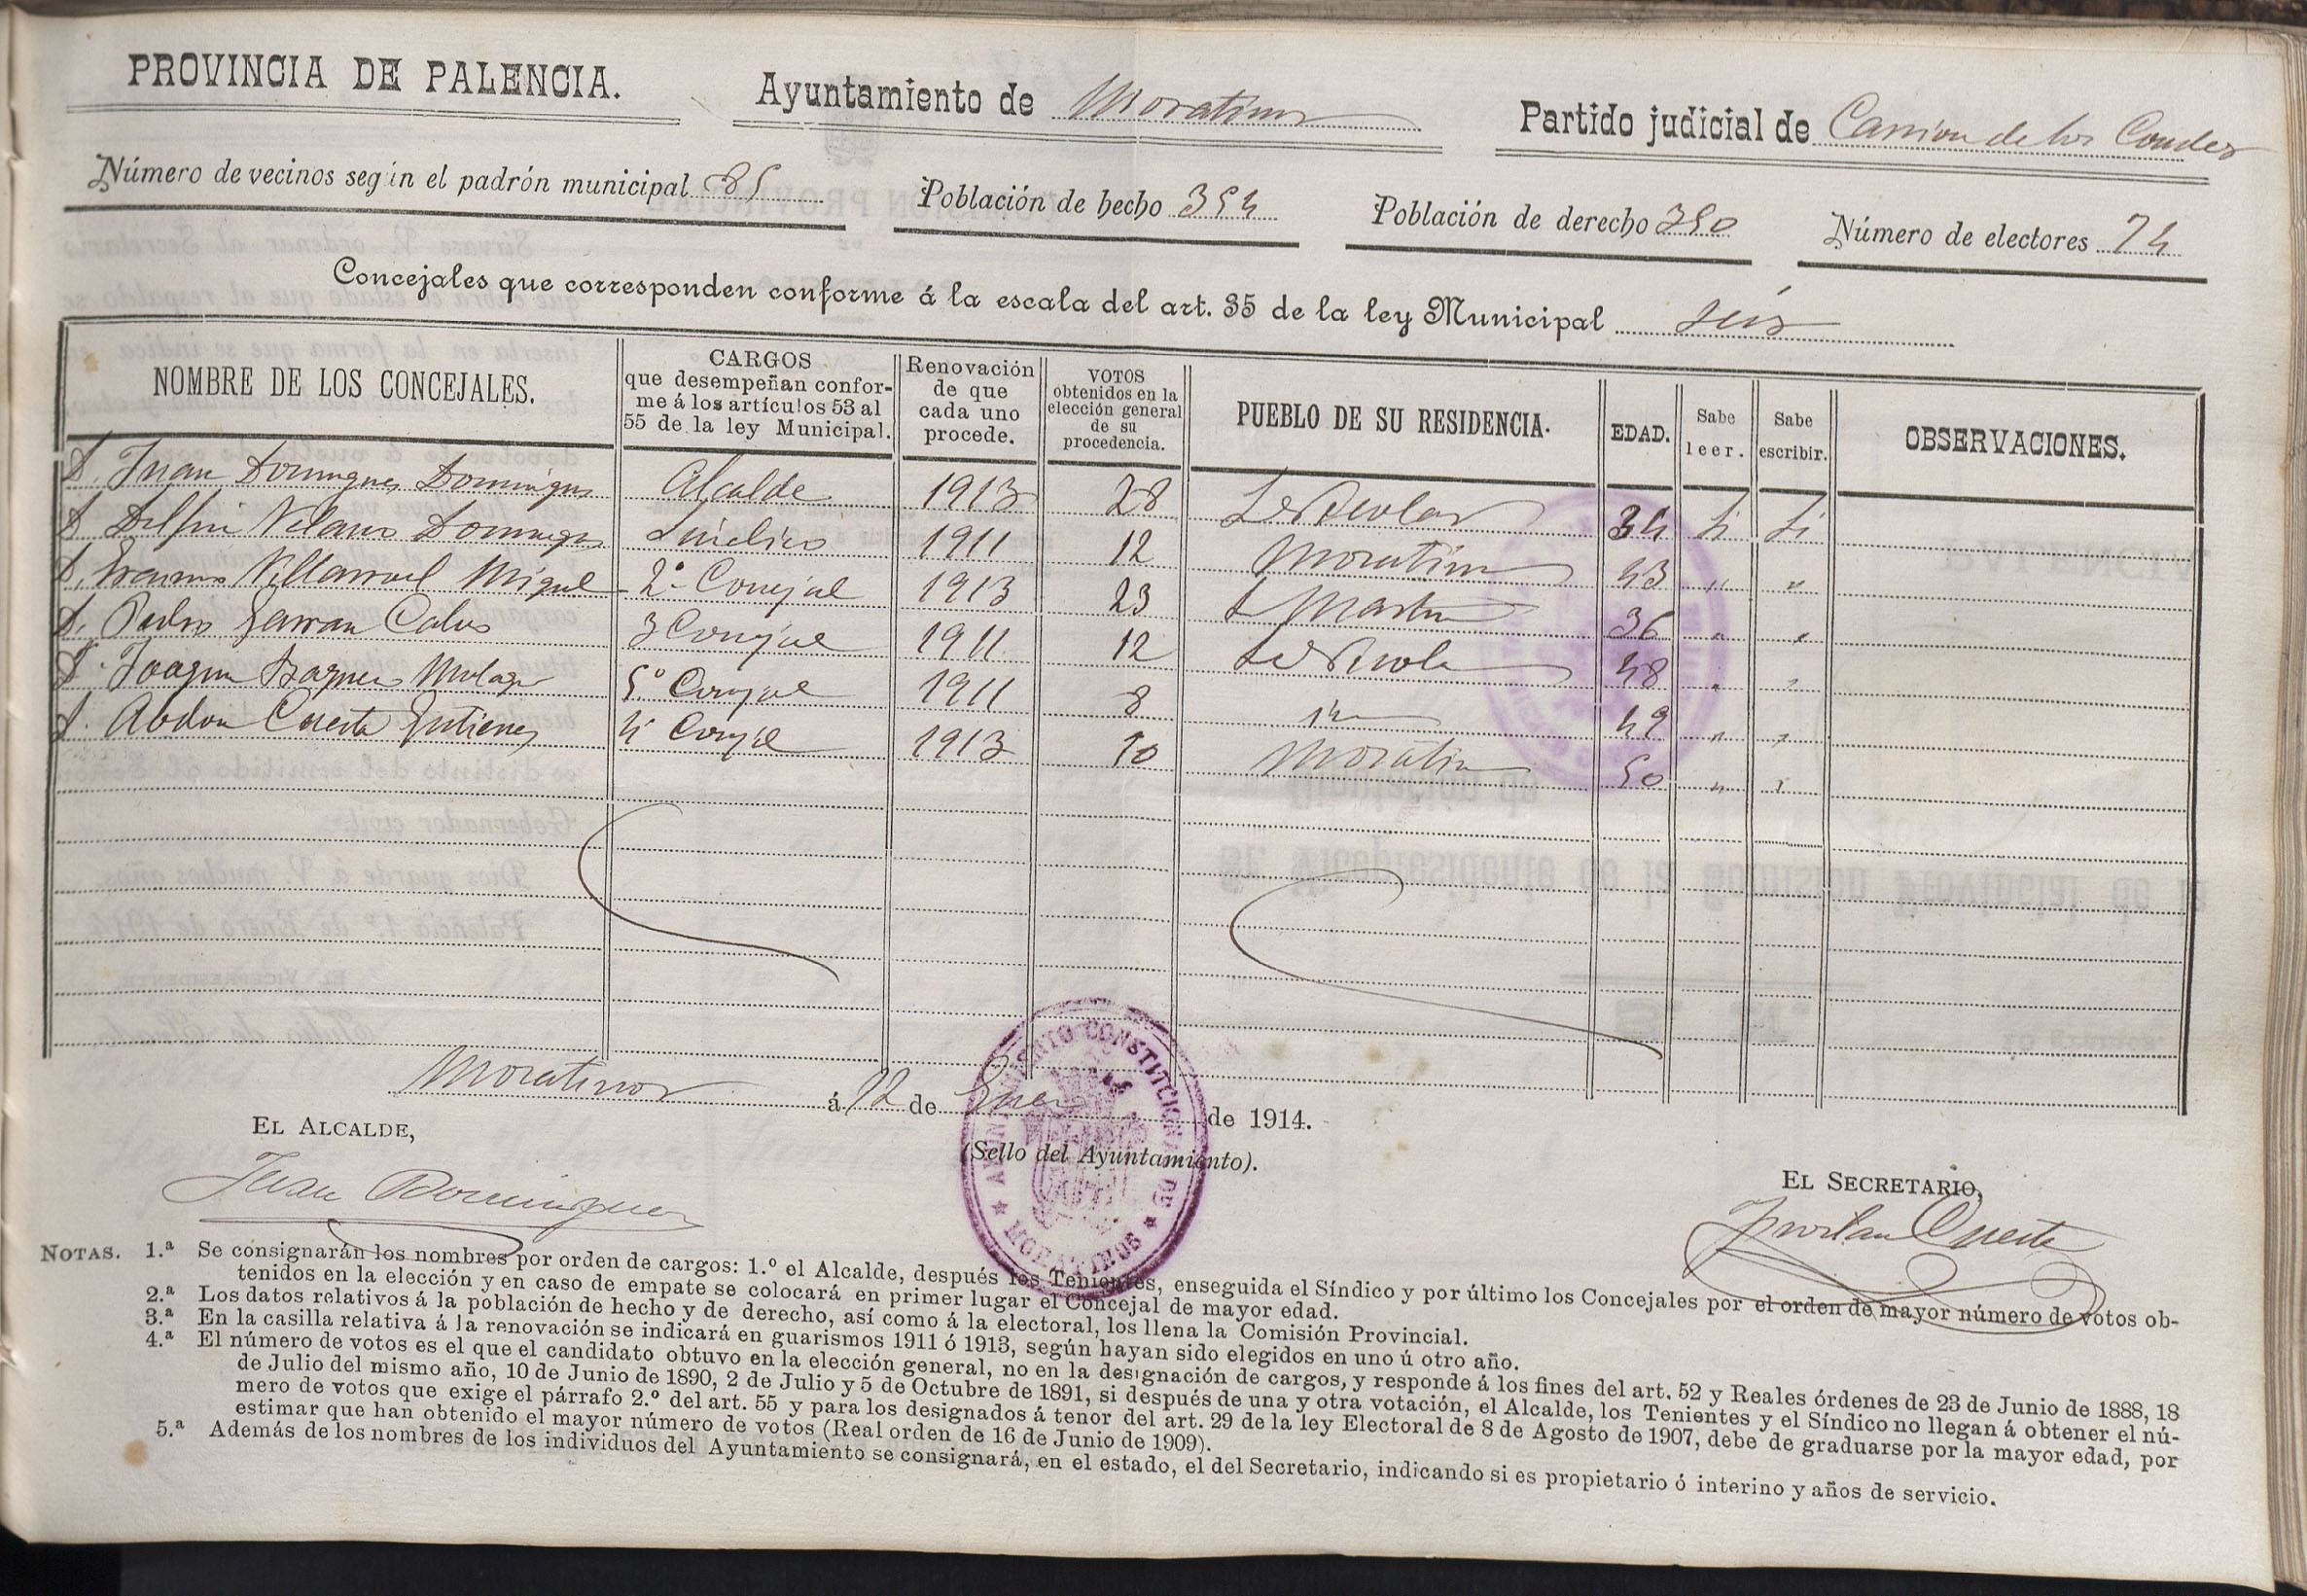 PROVINCIA DE PALENCIA.
Ayuntamiento de Moratinos
Partido judicial de Carrion de los Condes
Número de vecinos según el padrón municipal 85
Población de hecho 354
Población de derecho 350
Número de electores 74
Concejales que corresponden conforme á la escala del art. 35 de la ley Municipal seis
NOMBRE DE LOS CONCEJALES.
CARGOS
que desempeñan confor-
me á los artículos 53 al
55 de la ley Municipal.
Renovación
de que
cada uno
procede.
VOTOS
obtenidos en la
elección general
de su
procedencia.
PUEBLO DE SU RESIDENCIA.
EDAD.
Sabe
leer.
Sabe
escribir.
OBSERVACIONES.
D. Juan Dominguez Dominguez Alcalde 1913 28 34 Si Si
D. Delfin Velasco Dominguez Sindico 1911 12 Moratinos 43 " "
D. Villarroel Miguel 2º Concejal 1913 23 S Martin 36 " "
D. Pedro Garran Calvo 3 Concejal 1911 12 48 " "
D. Joaquin 5º Concejal 1911 8 49 " "
D. Abdon Cuesta Gutierrez 4º Concejal 1913 10 Moratinos 50 " "
Moratinos á 12 de Enero de 1914.
EL ALCALDE,
(Sello del Ayuntamiento).
EL SECRETARIO,
Juan Dominguez
Froilan Cuesta
AYUNTAMIENTO CONSTITUCIONAL DE MORATINOS
NOTAS. 1.ª Se consignarán los nombres por orden de cargos: 1.º el Alcalde, después los Tenientes, enseguida el Síndico y por último los Concejales por el orden de mayor número de votos ob-
tenidos en la elección y en caso de empate se colocará en primer lugar el Concejal de mayor edad.
2.ª Los datos relativos á la población de hecho y de derecho, así como á la electoral, los llena la Comisión Provincial.
3.ª En la casilla relativa á la renovación se indicará en guarismos 1911 ó 1913, según hayan sido elegidos en uno ú otro año.
4.ª El número de votos es el que el candidato obtuvo en la elección general, no en la designación de cargos, y responde á los fines del art. 52 y Reales órdenes de 23 de Junio de 1888, 18
de Julio del mismo año, 10 de Junio de 1890, 2 de Julio y 5 de Octubre de 1891, si después de una y otra votación, el Alcalde, los Tenientes y el Síndico no llegan á obtener el nú-
mero de votos que exige el párrafo 2.º del art. 55 y para los designados á tenor del art. 29 de la ley Electoral de 8 de Agosto de 1907, debe de graduarse por la mayor edad, por
estimar que han obtenido el mayor número de votos (Real orden de 16 de Junio de 1909).
5.ª Además de los nombres de los individuos del Ayuntamiento se consignará, en el estado, el del Secretario, indicando si es propietario ó interino y años de servicio.